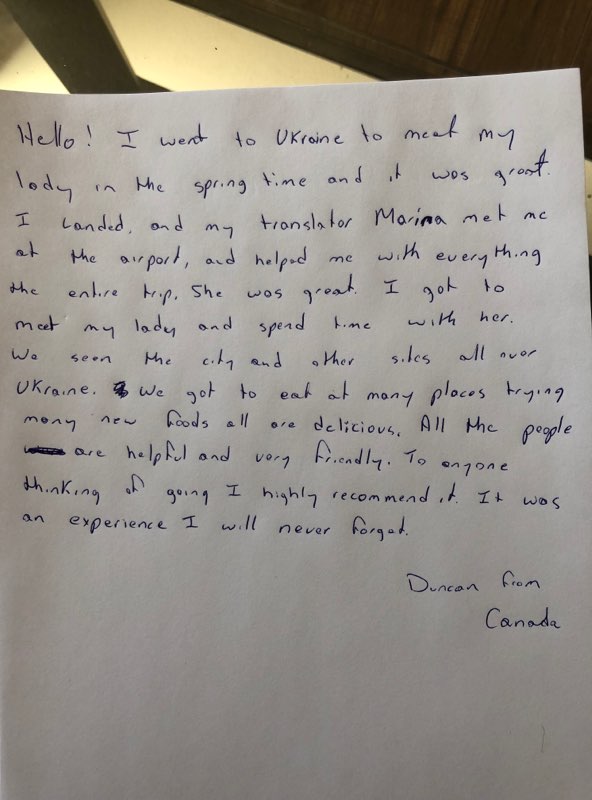 Hello! I went to Ukraine to meet my
lady in the spring time and it was great.
I landed, and my translator Marina met me
at the airport, and helped me with everything
the entire trip. She was great. I got to
meet my lady and spend time with her.
We seen the city and other sites all over
Ukraine. We got to eat at many places trying
many new foods all are delicious. All the people
are helpful and very friendly. To anyone
thinking of going I highly recommend it. It was
an experience I will never forget.
Duncan from
Canada